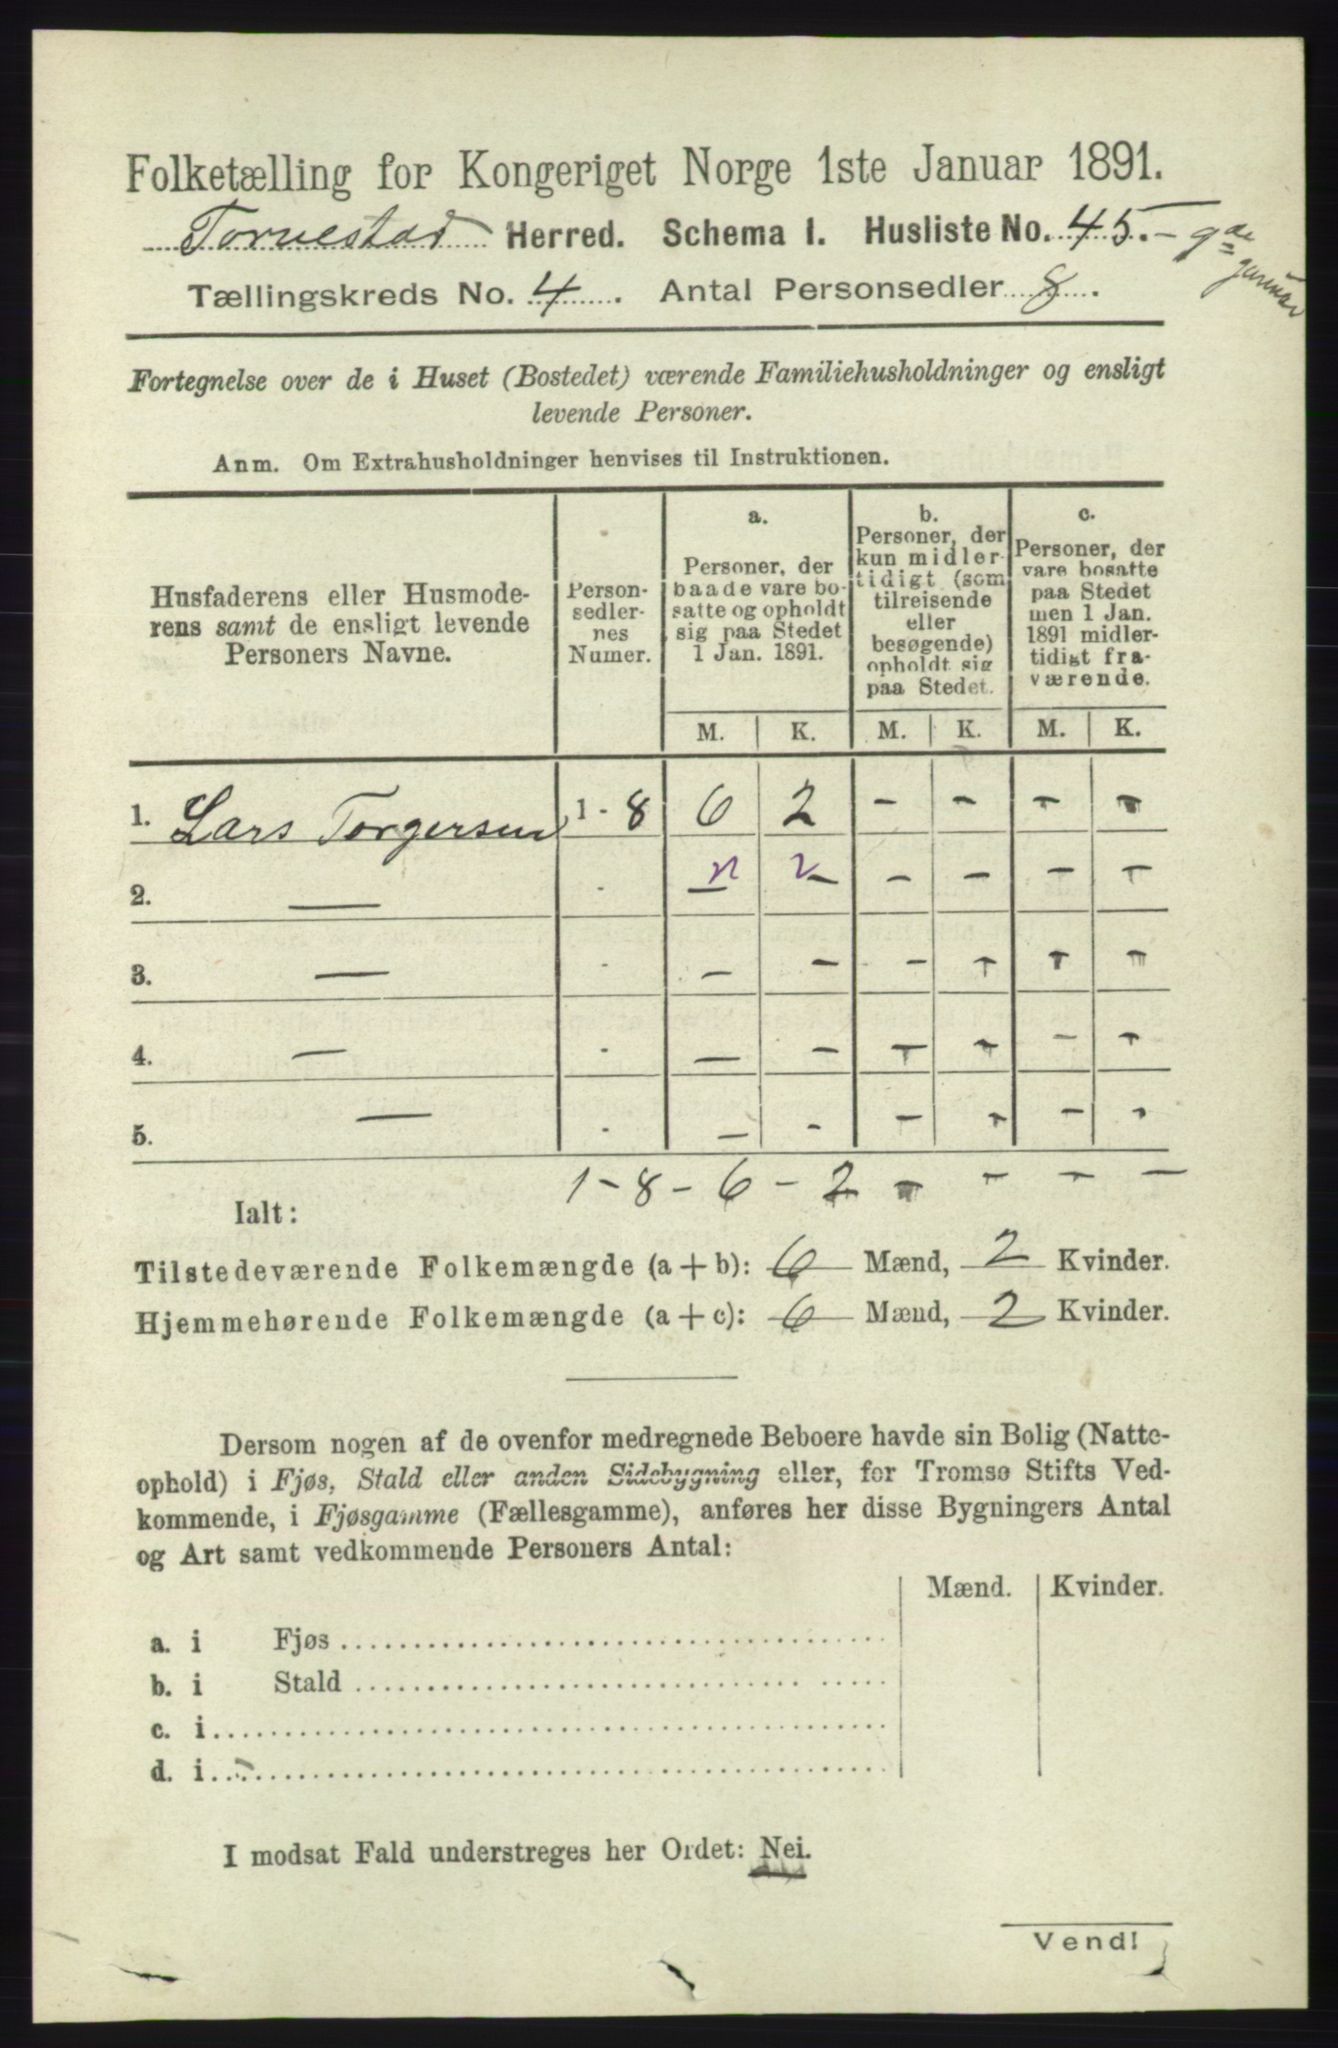 Folketælling for Kongeriget Norge 1ste Januar 1891.
Torvestad Herred. Schema 1. Husliste No. 45. - 9de
Januar
Tællingskreds No. 4. Antal Personsedler 8.
Fortegnelse over de i Huset (Bostedet) værende Familiehusholdninger og ensligt
levende Personer.
Anm. Om Extrahusholdninger henvises til Instruktionen.
Husfaderens eller Husmode-
rens samt de ensligt levende
Personers Navne.
Person-
sedler-
nes
Numer.
a.
Personer, der
baade vare bo-
satte og opholdt
sig paa Stedet
1 Jan. 1891.
b.
Personer, der
kun midler-
tidigt (som
tilreisende
eller
besøgende)
opholdt sig
paa Stedet.
c.
Personer, der
vare bosatte
paa Stedet
men 1 Jan.
1891 midler-
tidigt fra-
værende.
M. K. M. K. M. K.
1. Lars Torgersen 1 - 8 6 2 - - - -
2. — - - - - - - -
3. — - - - - - - -
4. — - - - - - - -
5. — - - - - - - -
1 - 8 - 6 - 2 - - - -
Ialt:
Tilstedeværende Folkemængde (a + b): 6 Mænd, 2 Kvinder.
Hjemmehørende Folkemængde (a + c): 6 Mænd, 2 Kvinder.
Dersom nogen af de ovenfor medregnede Beboere havde sin Bolig (Natte-
ophold) i Fjøs, Stald eller anden Sidebygning eller, for Tromsø Stifts Ved-
kommende, i Fjøsgamme (Fællesgamme), anføres her disse Bygningers Antal
og Art samt vedkommende Personers Antal:
Mænd. Kvinder.
a. i Fjøs
b. i Stald
c. i
d. i
I modsat Fald understreges her Ordet: Nei.
Vend!